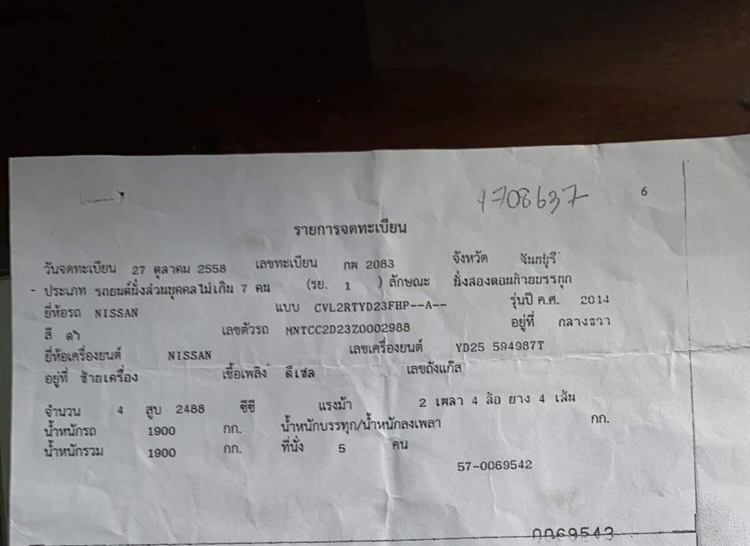 4708637 6
รายการจดทะเบียน
วันจดทะเบียน 27 ตุลาคม 2558 เลขทะเบียน กผ 2083 จังหวัด จันทบุรี
- ประเภท รถยนต์นั่งส่วนบุคคลไม่เกิน 7 คน (รย. 1 ) ลักษณะ นั่งสองตอนท้ายบรรทุก
ยี่ห้อรถ NISSAN แบบ CVL2RTYD23FHP--A-- รุ่นปี ค.ศ. 2014
สี ดำ เลขตัวรถ MNTCC2D23Z0002988 อยู่ที่ กลางขวา
ยี่ห้อเครื่องยนต์ NISSAN เลขเครื่องยนต์ YD25 594987T
อยู่ที่ ซ้ายเครื่อง เชื้อเพลิง ดีเซล เลขถังแก๊ส
จำนวน 4 สูบ 2488 ซีซี แรงม้า 2 เพลา 4 ล้อ ยาง 4 เส้น
น้ำหนักรถ 1900 กก. น้ำหนักบรรทุก/น้ำหนักลงเพลา กก.
น้ำหนักรวม 1900 กก. ที่นั่ง 5 คน
57-0069542
0069543